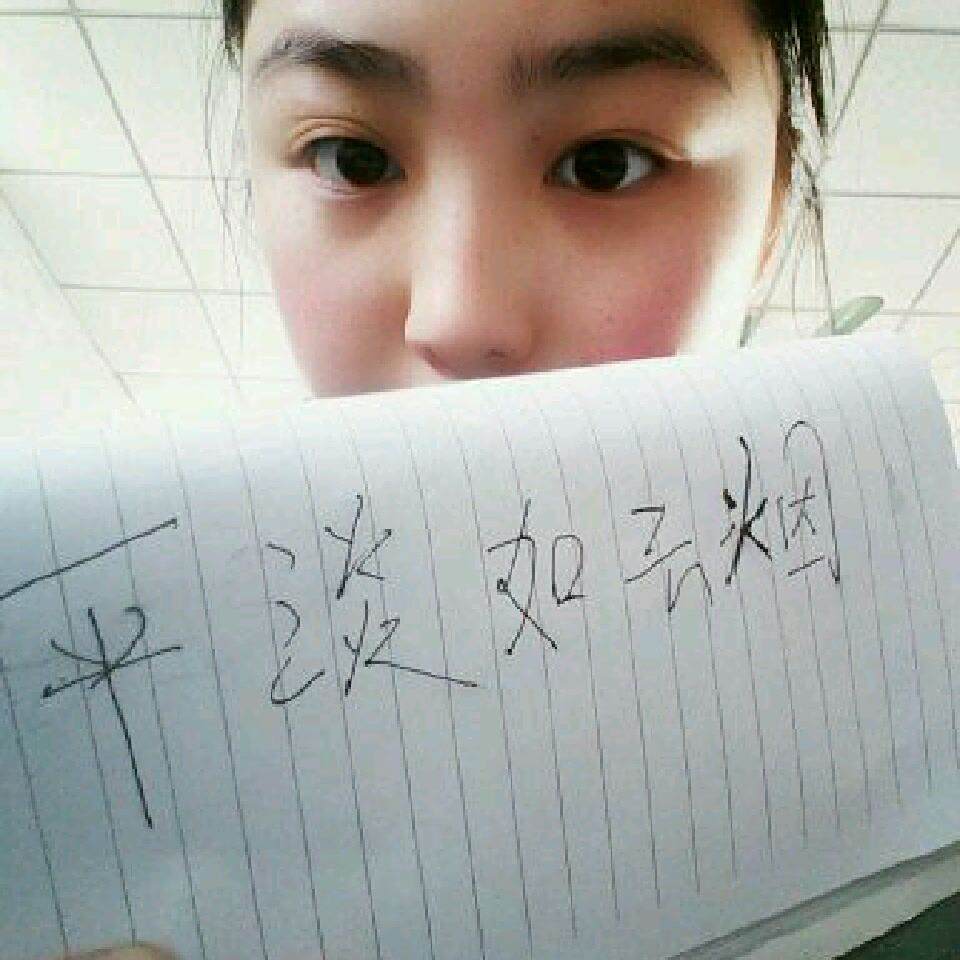 平淡如云烟